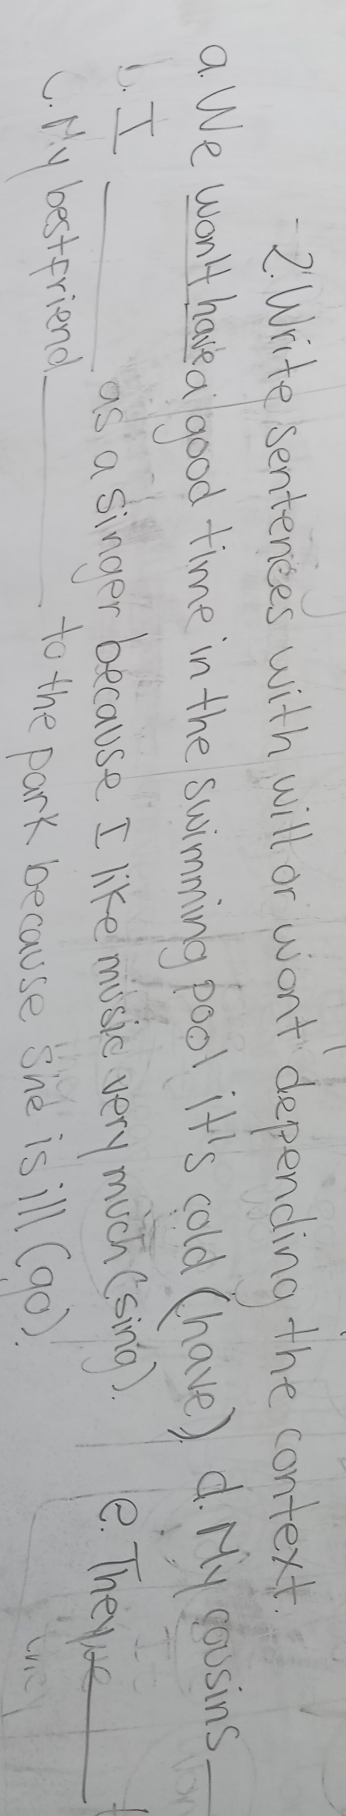 2. Write sentences with will or wont depending the context.
a. We won't have a good time in the swimming pool it's cold (have)
b. I ______ as a singer because I like music very much (sing).
c. My best friend ______ to the park because she is ill (go).
d. My cousins
e. They